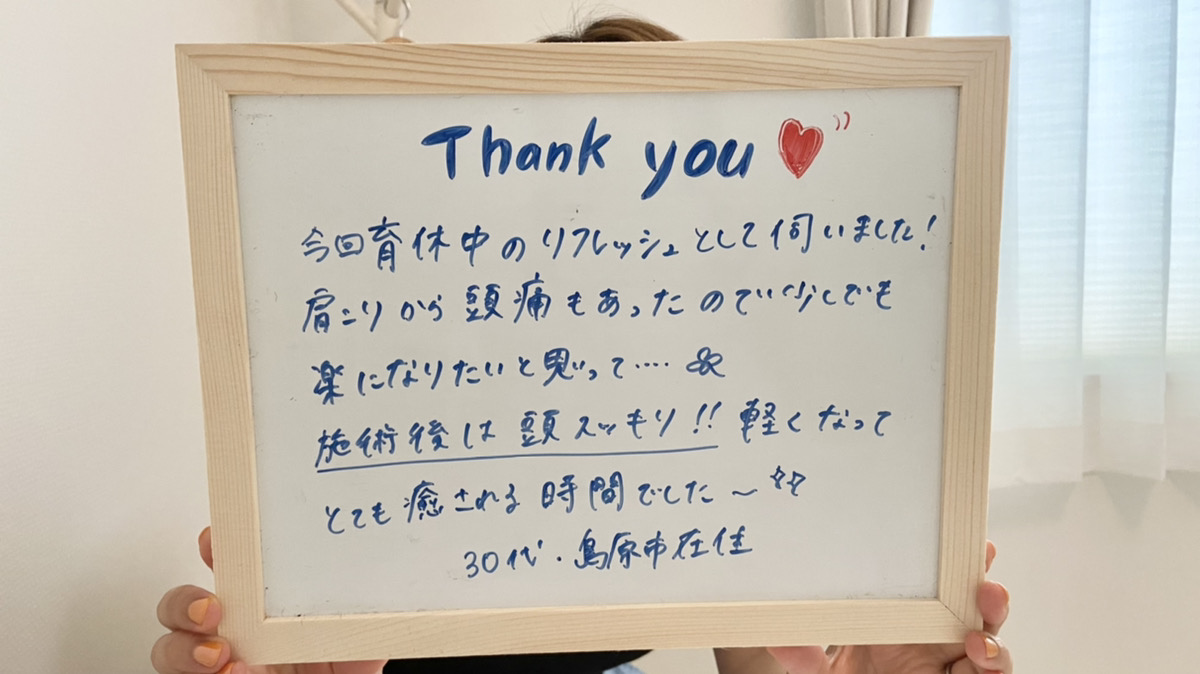 Thank you
今回育休中のリフレッシュとして伺いました!
肩こりから頭痛もあったので少しでも
楽になりたいと思って....
施術後は頭スッキリ!! 軽くなって
とても癒される時間でした~
30代・島原市在住